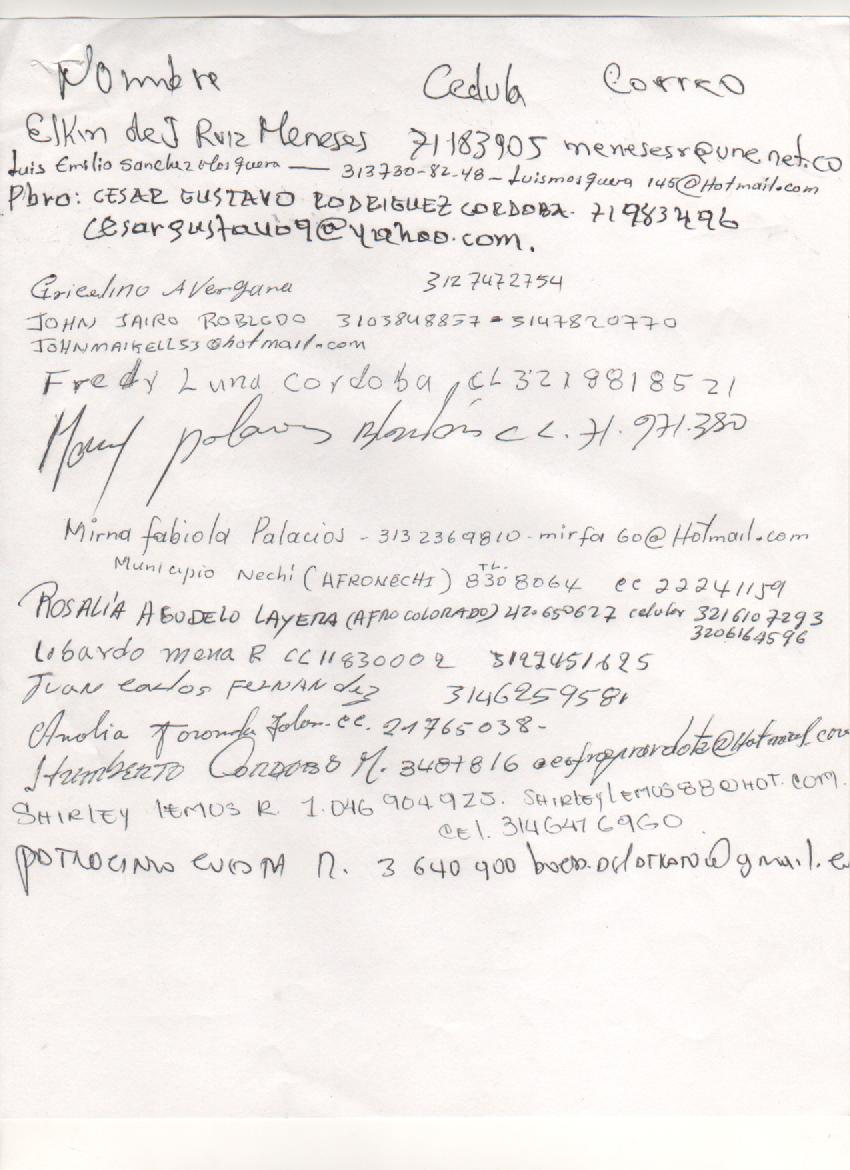 Nombre Cedula Correo
Elkin de J Ruiz Meneses 71183905 menesesr@une.net.co
Luis Emilio Sanchez Mosquera — 313730-82-48 - Luismosquera 145@Hotmail.com
Pbro: CESAR GUSTAVO RODRIGUEZ CORDOBA. 71983496
cesargustavo9@yahoo.com.
Gricelino A Vergara 3127472754
JOHN JAIRO ROBLEDO 3103848857 - 3147820770
JOHNMAIKELL53@hotmail.com
Fredy Luna Cordoba, CL 3219818521
CC. 71.971.380
Mirna fabiola Palacios - 3132369810 - mirfa 60@Hotmail.com
Municipio Nechí (AFRONECHI) TL. 8308064 cc 22241159
ROSALÍA AGUDELO LAYERA (AFROCOLORADO) 42.650627 celular 3216107293
3206164596
Libardo mena R CC 11830002 3122451625
Juan Carlos FERNANdez 3146259581
Amalia cc. 21765038-
HUMBERTO CORDOBA M. 3487816 @Hotmail.com
SHIRLEY LEMOS R. 1.046 904925. SHIRLEYLEMOS88@HOT.COM.
CEl. 3146476960
3 640 900 @gmail.c